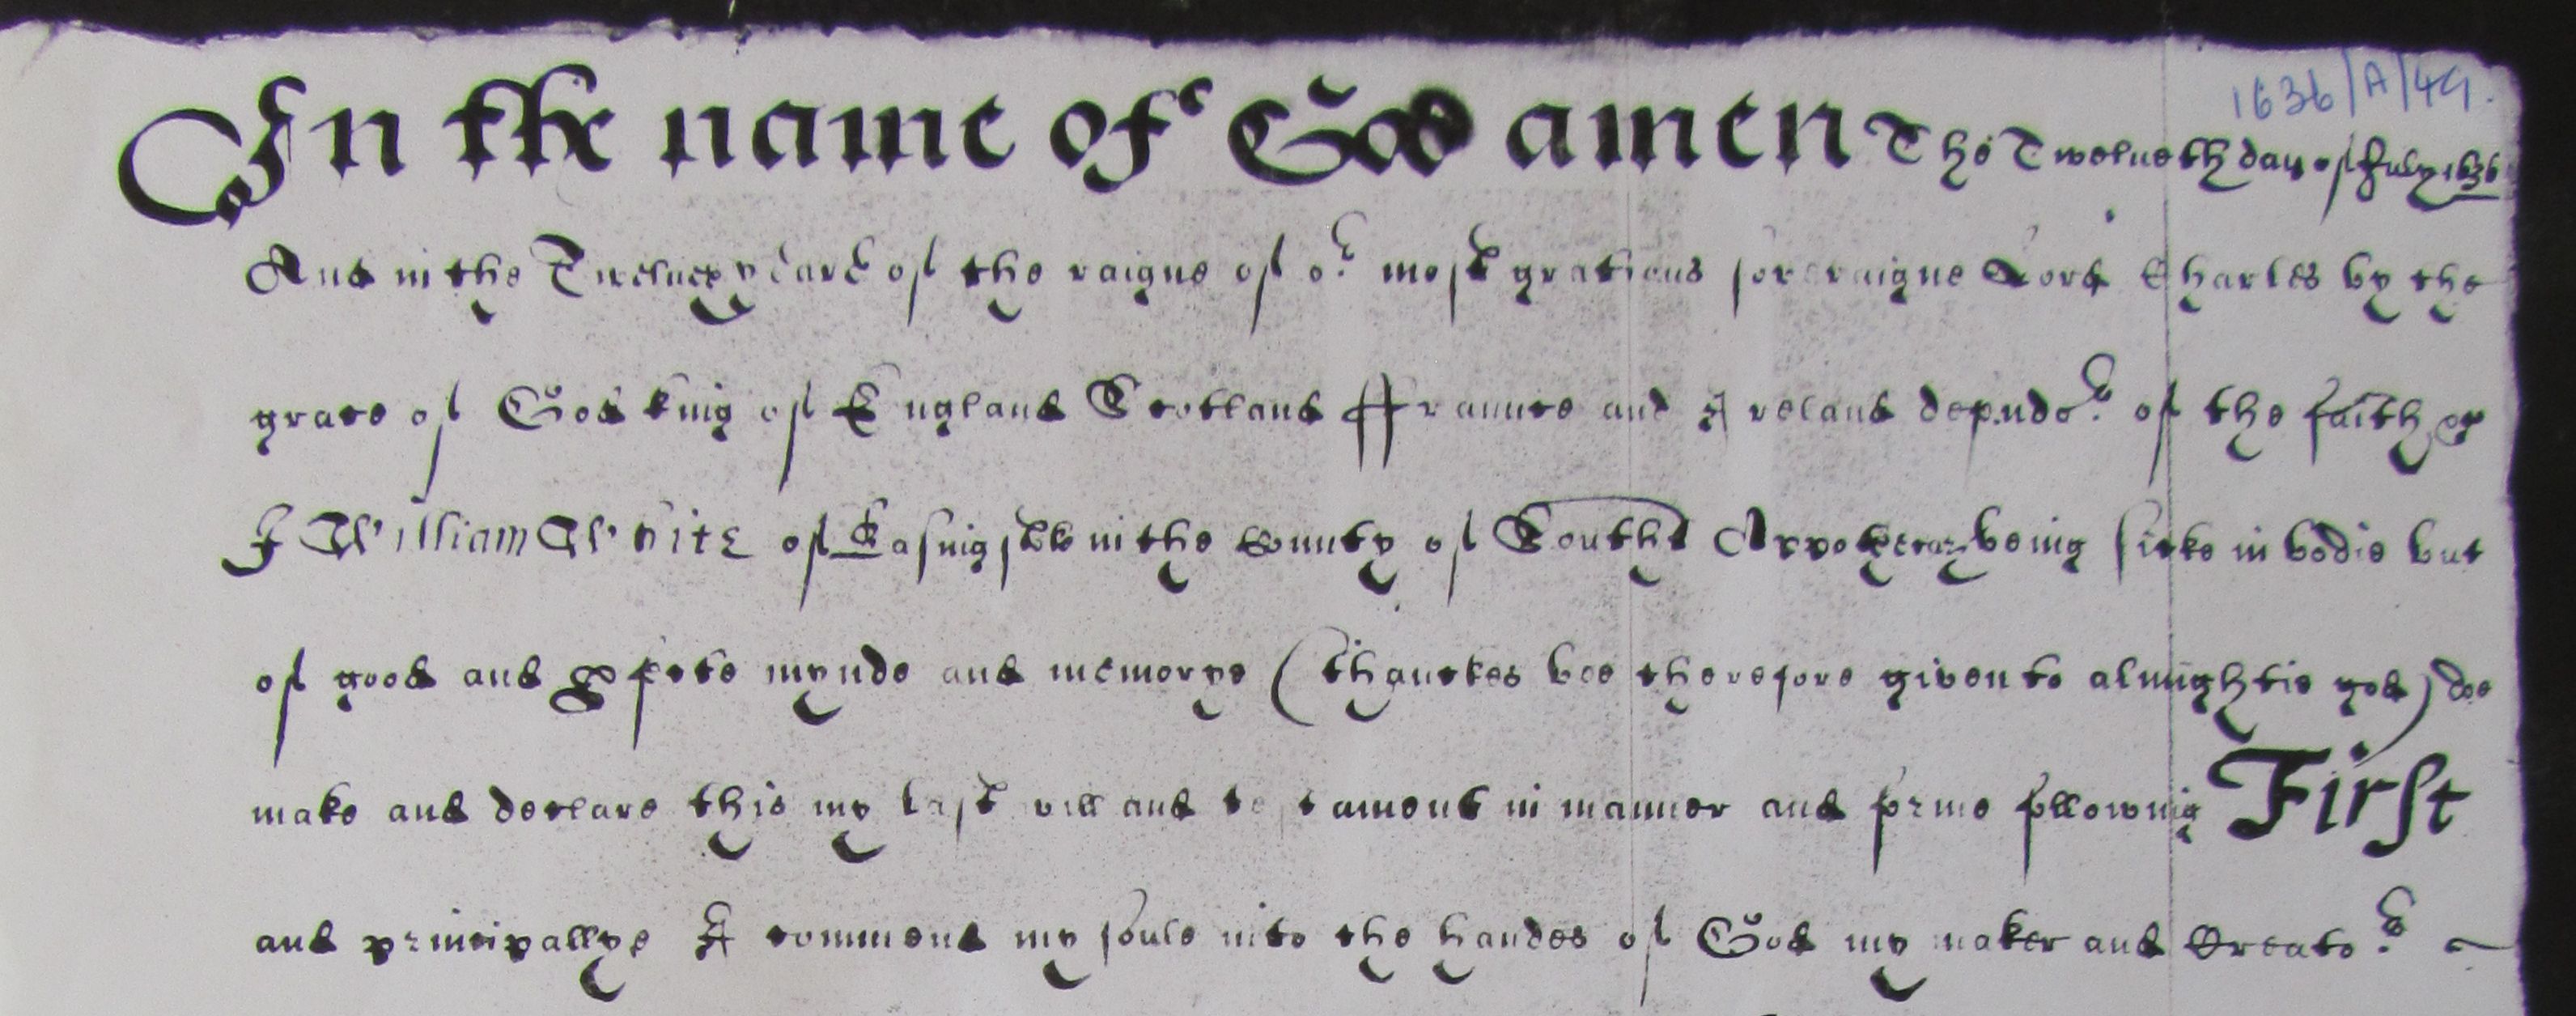 1636/A/49.
In the name of God amen The Twelueth day of July 1636
And in the Twelueth yeare of the raigne of or most gratious soveraigne Lord Charles by the
grace of God king of England Scotland ffraunce and Ireland defendor of the faith &c
I William White of Basingstoke in the County of Southt Appothecary being sicke in bodie but
of good and pfecte mynde and memorye (thanckes bee therefore given to almightie god) doe
make and declare this my last will and testament in manner and forme following First
and principallye I commend my soule into the handes of God my maker and Creator